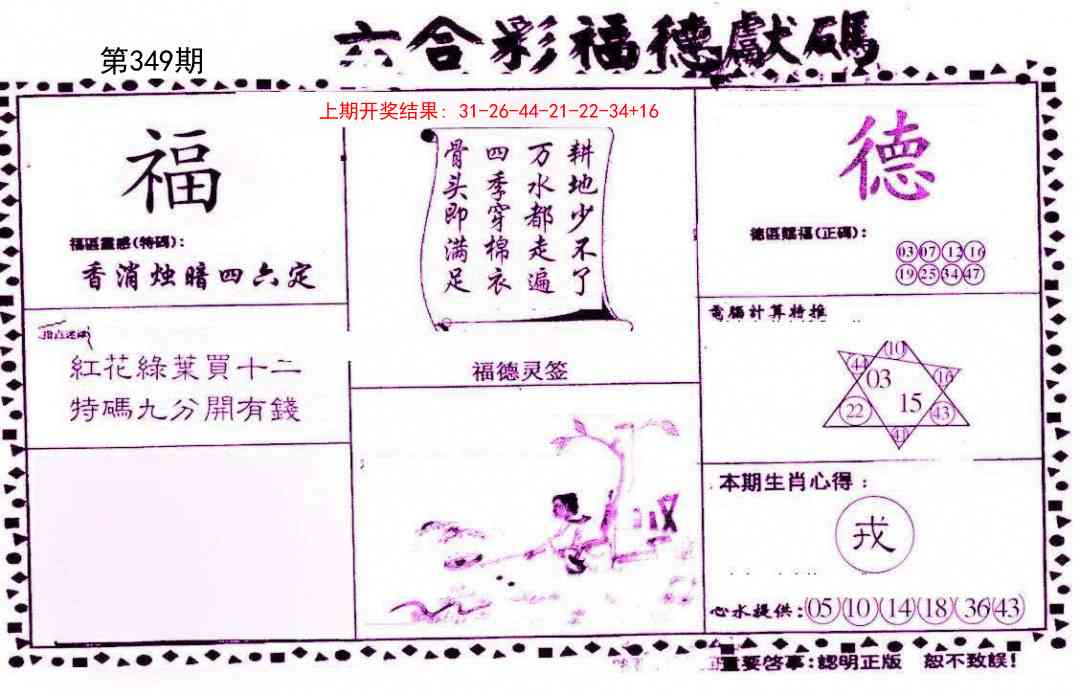 六合彩福德獻碼
第349期
上期开奖结果：31-26-44-21-22-34+16
福
福區靈感(特碼)：
香消烛暗四六定
紅花綠葉買十二
特碼九分開有錢
耕地少不了
万水都走遍
四季穿棉衣
骨头即满足
福德灵签
德
德區賜福(正碼)：
03 07 12 16
19 25 34 47
電腦計算特推
10
44 03 16
22 15 43
41
本期生肖心得：
戎
心水提供：05 10 14 18 36 43
重要启事：認明正版 恕不致誤！